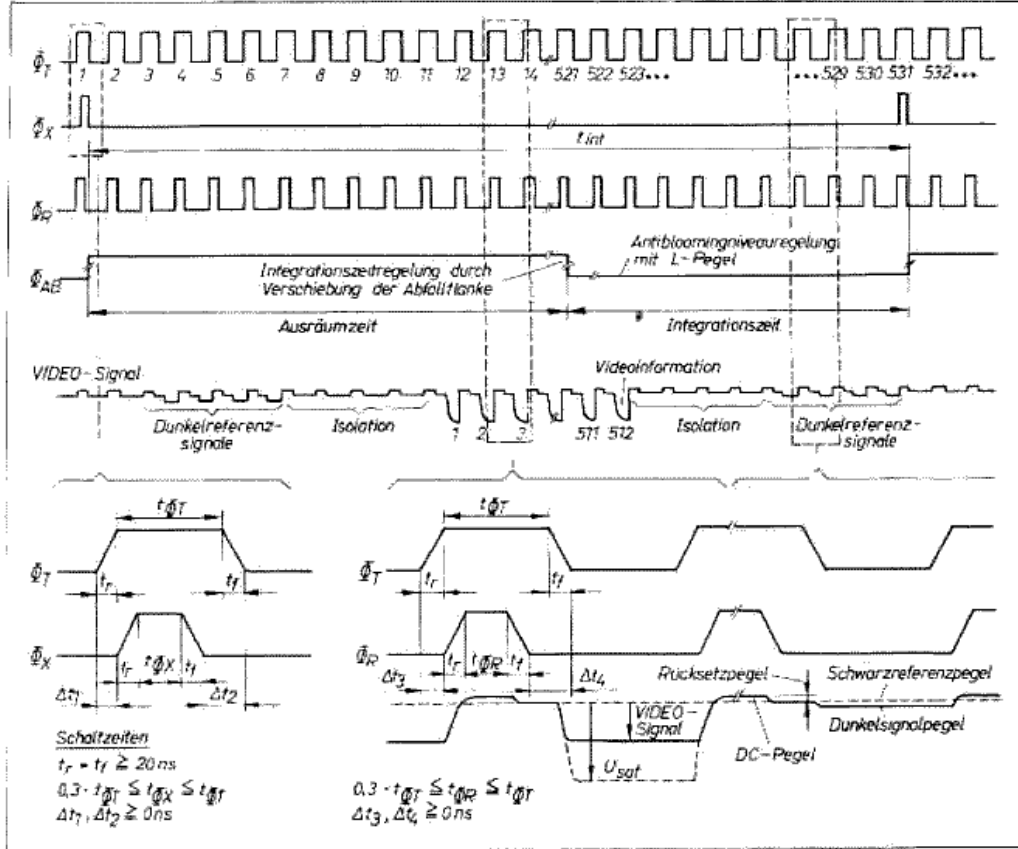 Φ_T
1 2 3 4 5 6 7 8 9 10 11 12 13 14 521 522 523... ...529 530 531 532...
Φ_X
t_int
Φ_R
Antibloomingniveauregelung
mit L-Pegel
Integrationszeitregelung durch
Verschiebung der Abfallflanke
Φ_AB
Ausräumzeit
Integrationszeit
VIDEO-Signal
Videoinformation
Dunkelreferenz-
signale
Isolation
1 2 3 511 512
Isolation
Dunkelreferenz-
signale
t_ΦT
Φ_T
t_r
t_f
Φ_X
t_r
t_ΦX
t_f
Δt_1
Δt_2
Schaltzeiten
t_r = t_f ≧ 20 ns
0,3 · t_ΦT ≦ t_ΦX ≦ t_ΦT
Δt_1, Δt_2 ≧ 0 ns
t_ΦT
Φ_T
t_r
t_f
Φ_R
t_r
t_ΦR
t_f
Δt_3
Δt_4
Rücksetzpegel
Schwarzreferenzpegel
VIDEO-
Signal
Dunkelsignalpegel
DC-Pegel
U_sat
0,3 · t_ΦT ≦ t_ΦR ≦ t_ΦT
Δt_3, Δt_4 ≧ 0 ns